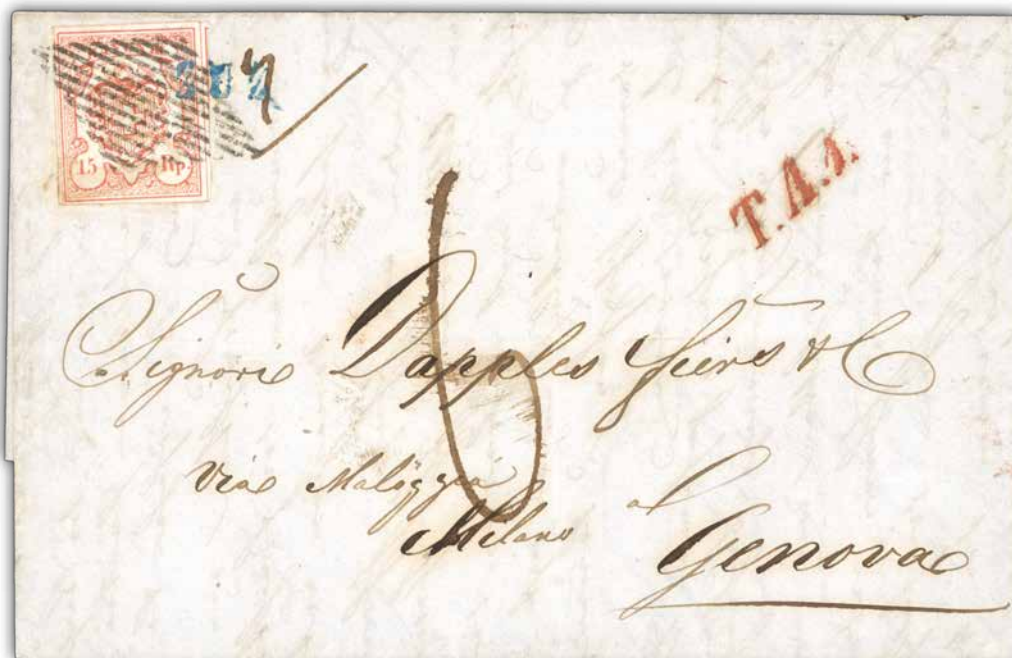 ZUZ
15 Rp
T.A.1.
6
Signori Dapples frères & C
via Malöggia
Milano al
Genova